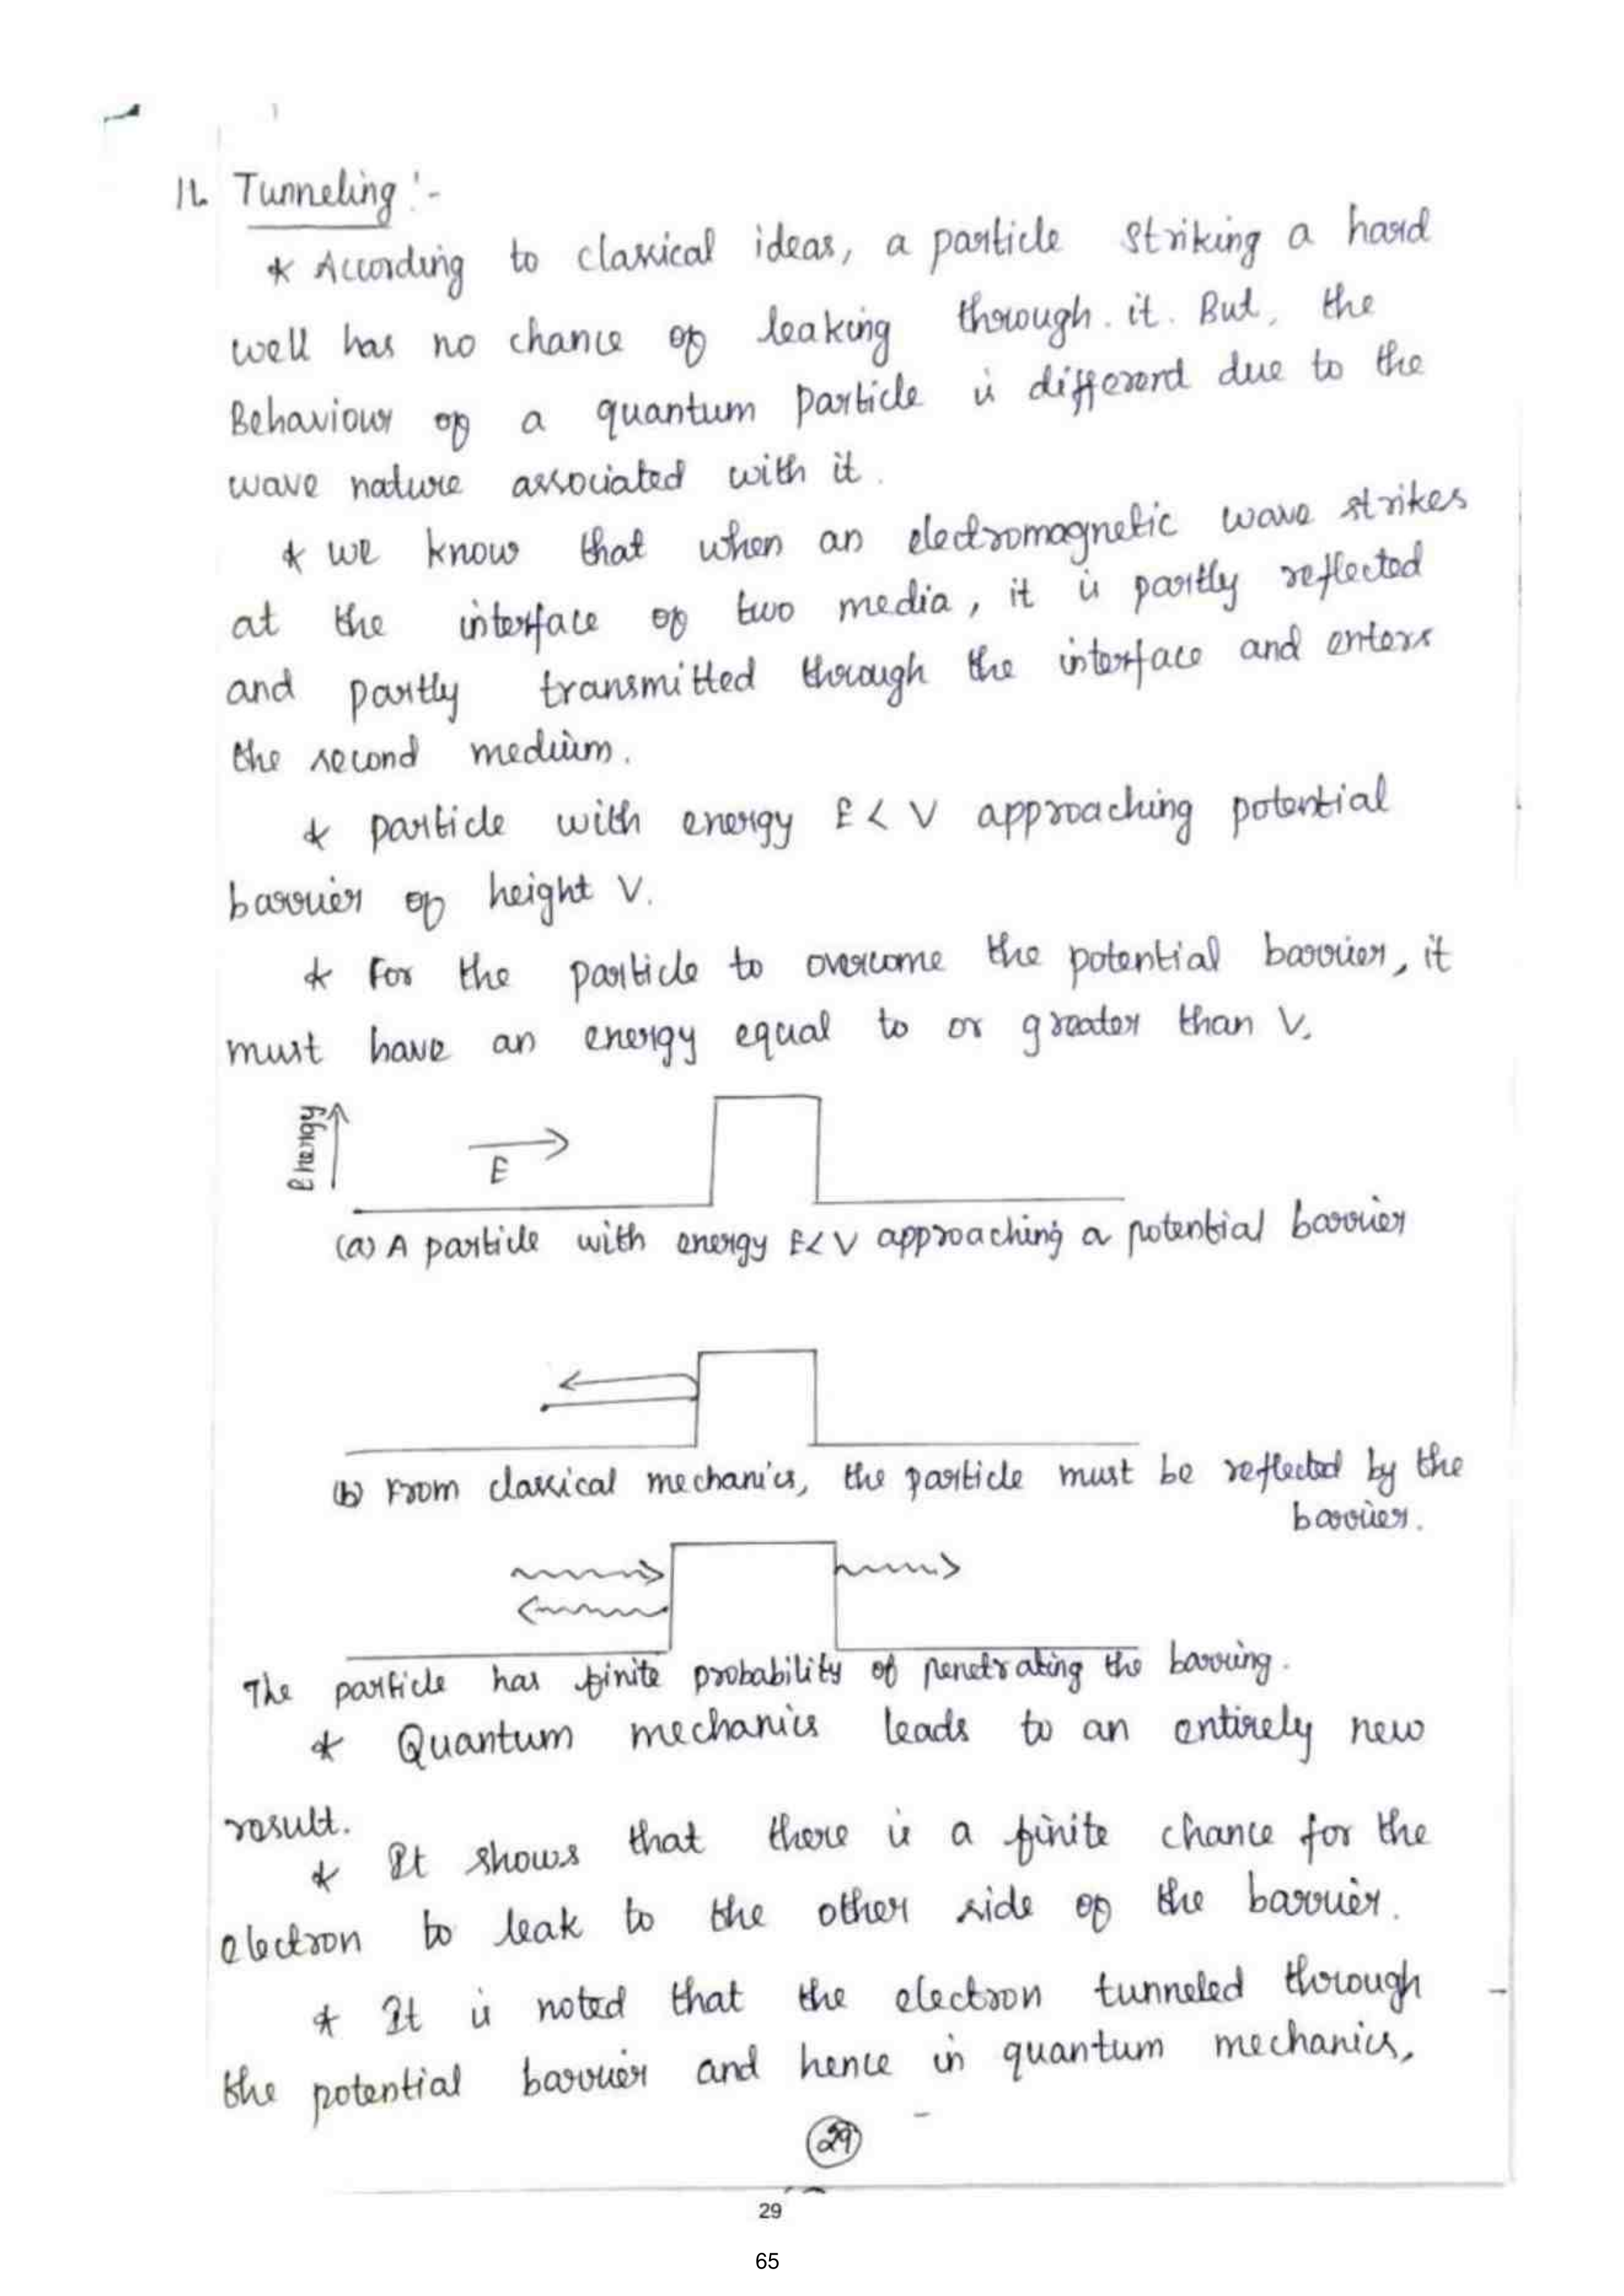 11. Tunneling :-
* According to classical ideas, a particle striking a hard
well has no chance of leaking through. it. But, the
Behaviour of a quantum particle is different due to the
wave nature associated with it.
* we know that when an electromagnetic wave strikes
at the interface of two media, it is partly reflected
and partly transmitted through the interface and enters
the second medium.
* particle with energy E < V approaching potential
barrier of height V.
* For the particle to overcome the potential barrier, it
must have an energy equal to or greater than V.
Energy
E
(a) A particle with energy E<V approaching a potential barrier
(b) From classical mechanics, the particle must be reflected by the
barrier.
The particle has finite probability of penetrating the barring.
* Quantum mechanics leads to an entirely new
result.
* It shows that there is a finite chance for the
electron to leak to the other side of the barrier.
* It is noted that the electron tunneled through
the potential barrier and hence in quantum mechanics,
29
29
65